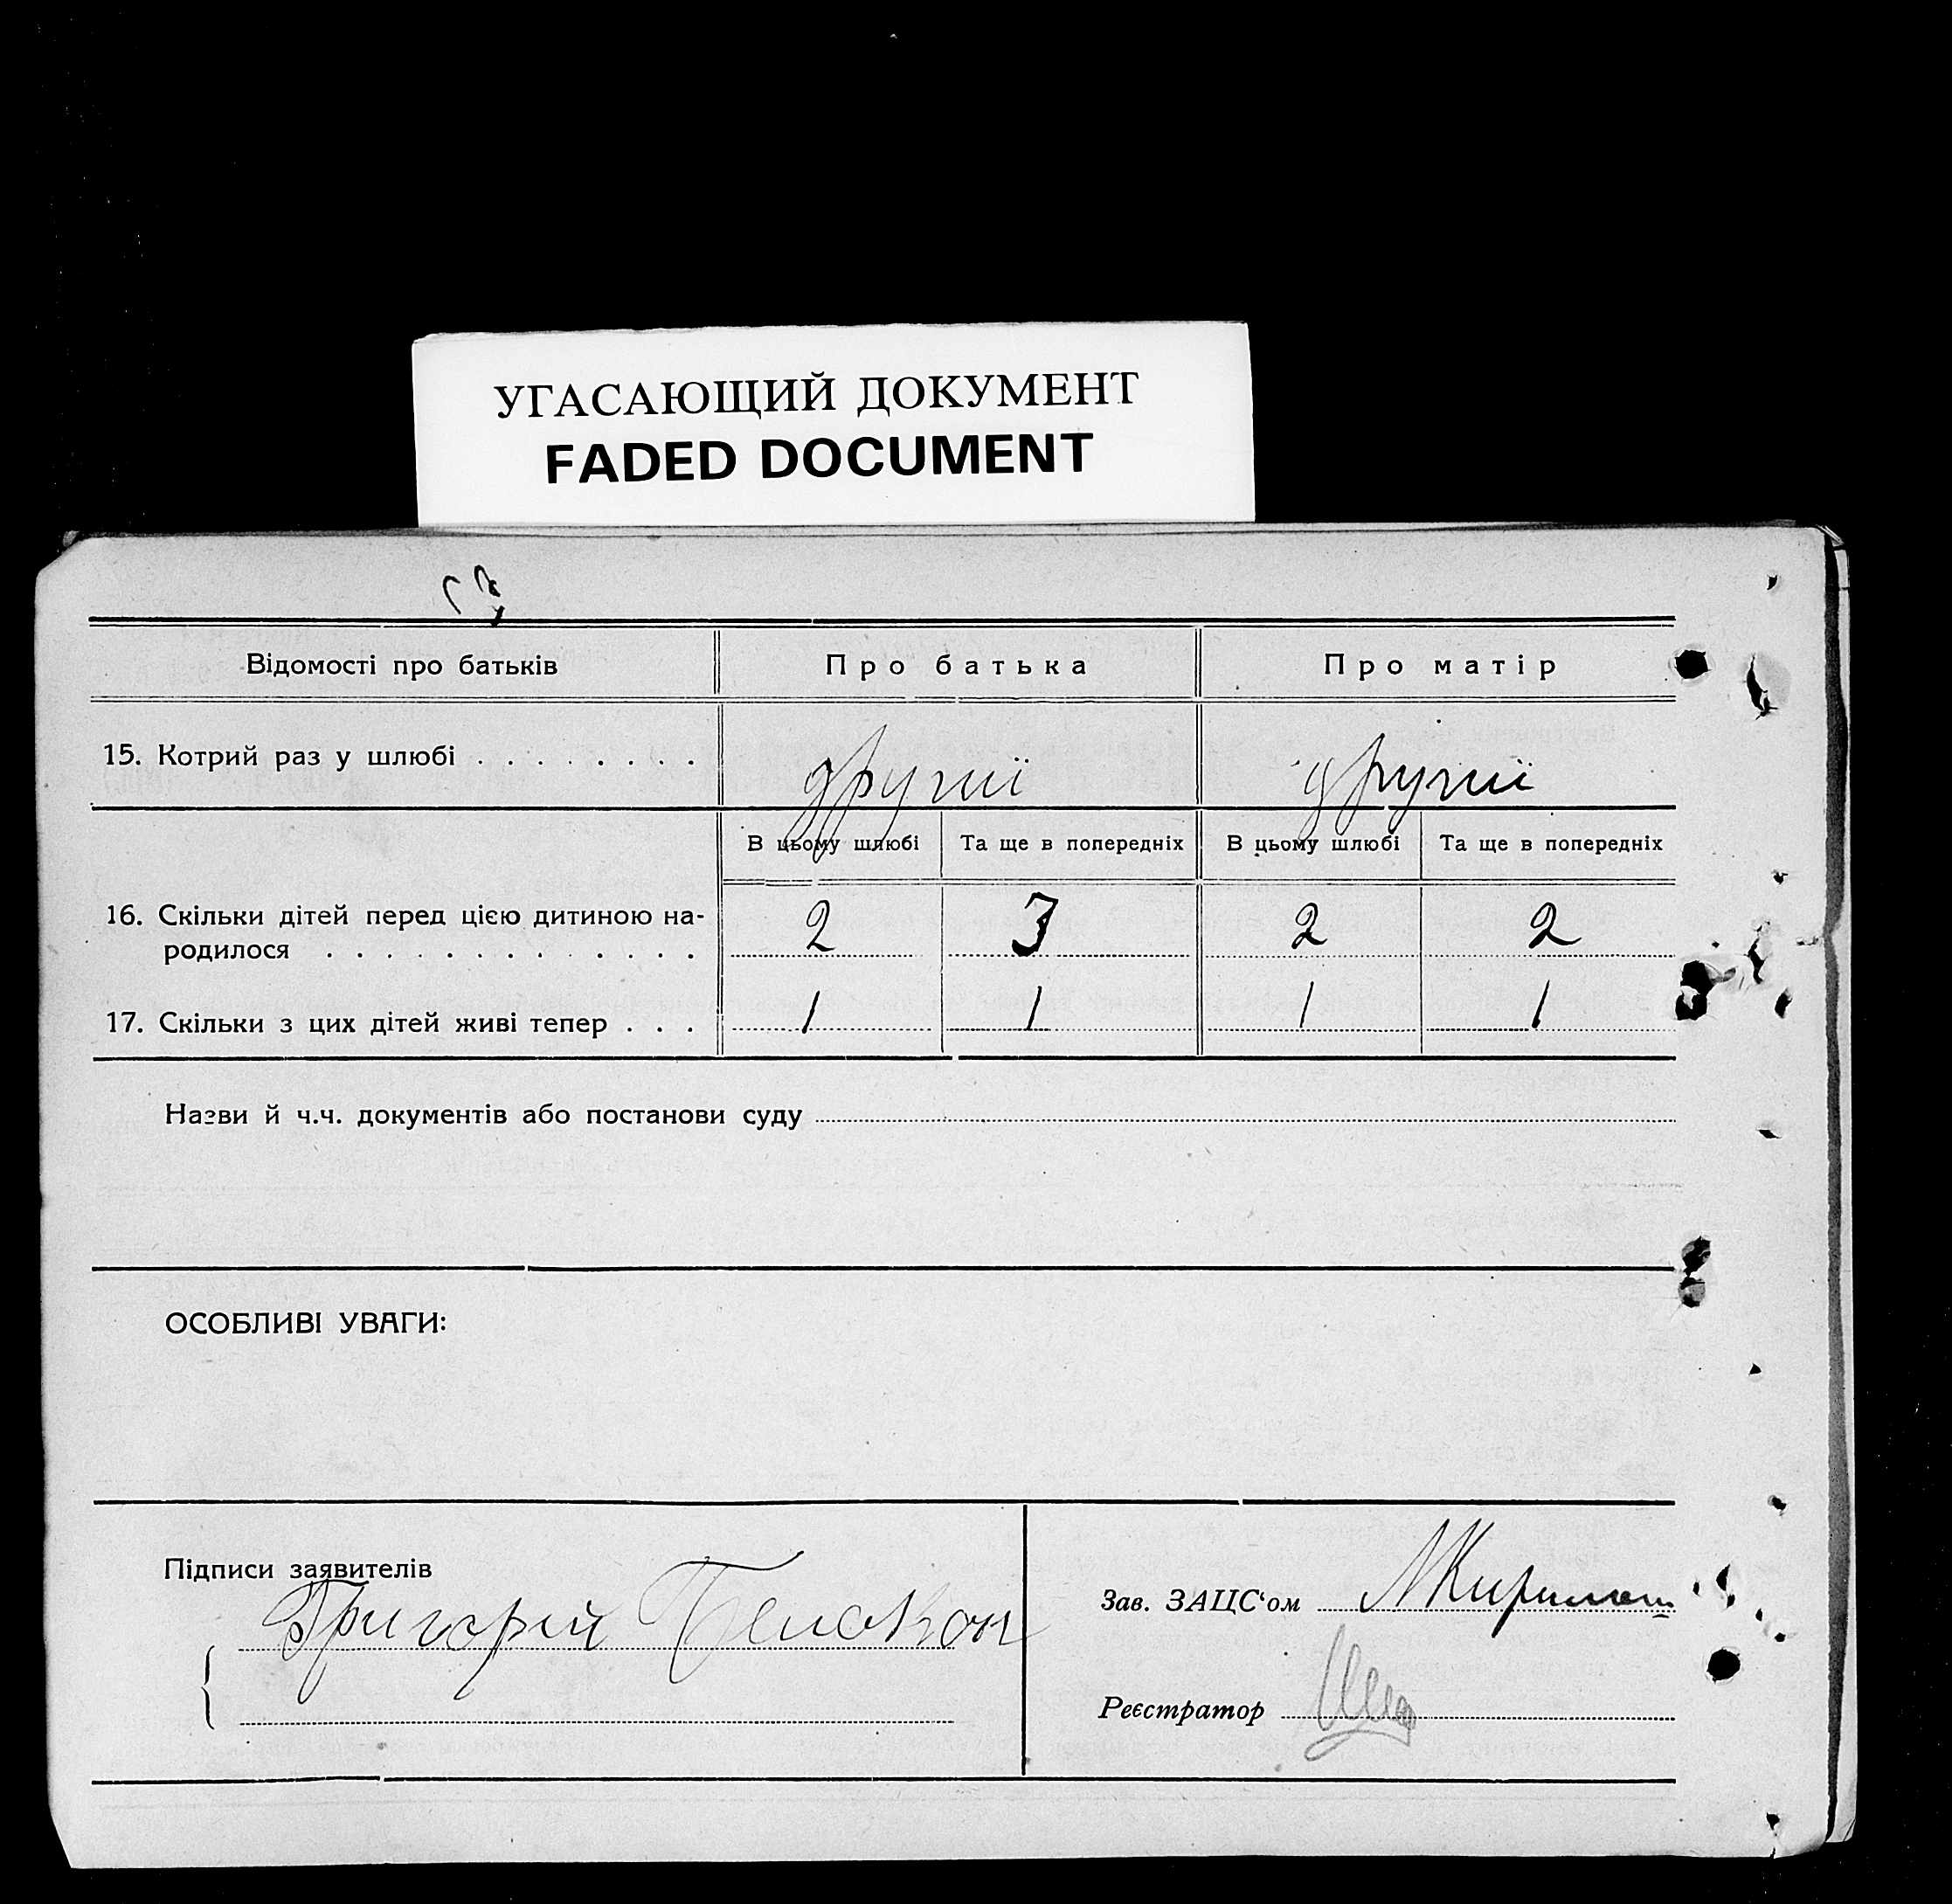 УГАСАЮЩИЙ ДОКУМЕНТ
FADED DOCUMENT
Відомості про батьків Про батька Про матір
15. Котрий раз у шлюбі . . . . . . . . другиї другиї
В цьому шлюбі Та ще в попередніх В цьому шлюбі Та ще в попередніх
16. Скільки дітей перед цією дитиною на-
родилося . . . . . . . . . . . . . 2 3 2 2
17. Скільки з цих дітей живі тепер . . . 1 1 1 1
Назви й ч.ч. документів або постанови суду
ОСОБЛИВІ УВАГИ:
Підписи заявителів
Григорій
Зав. ЗАЦС‘ом
Реєстратор